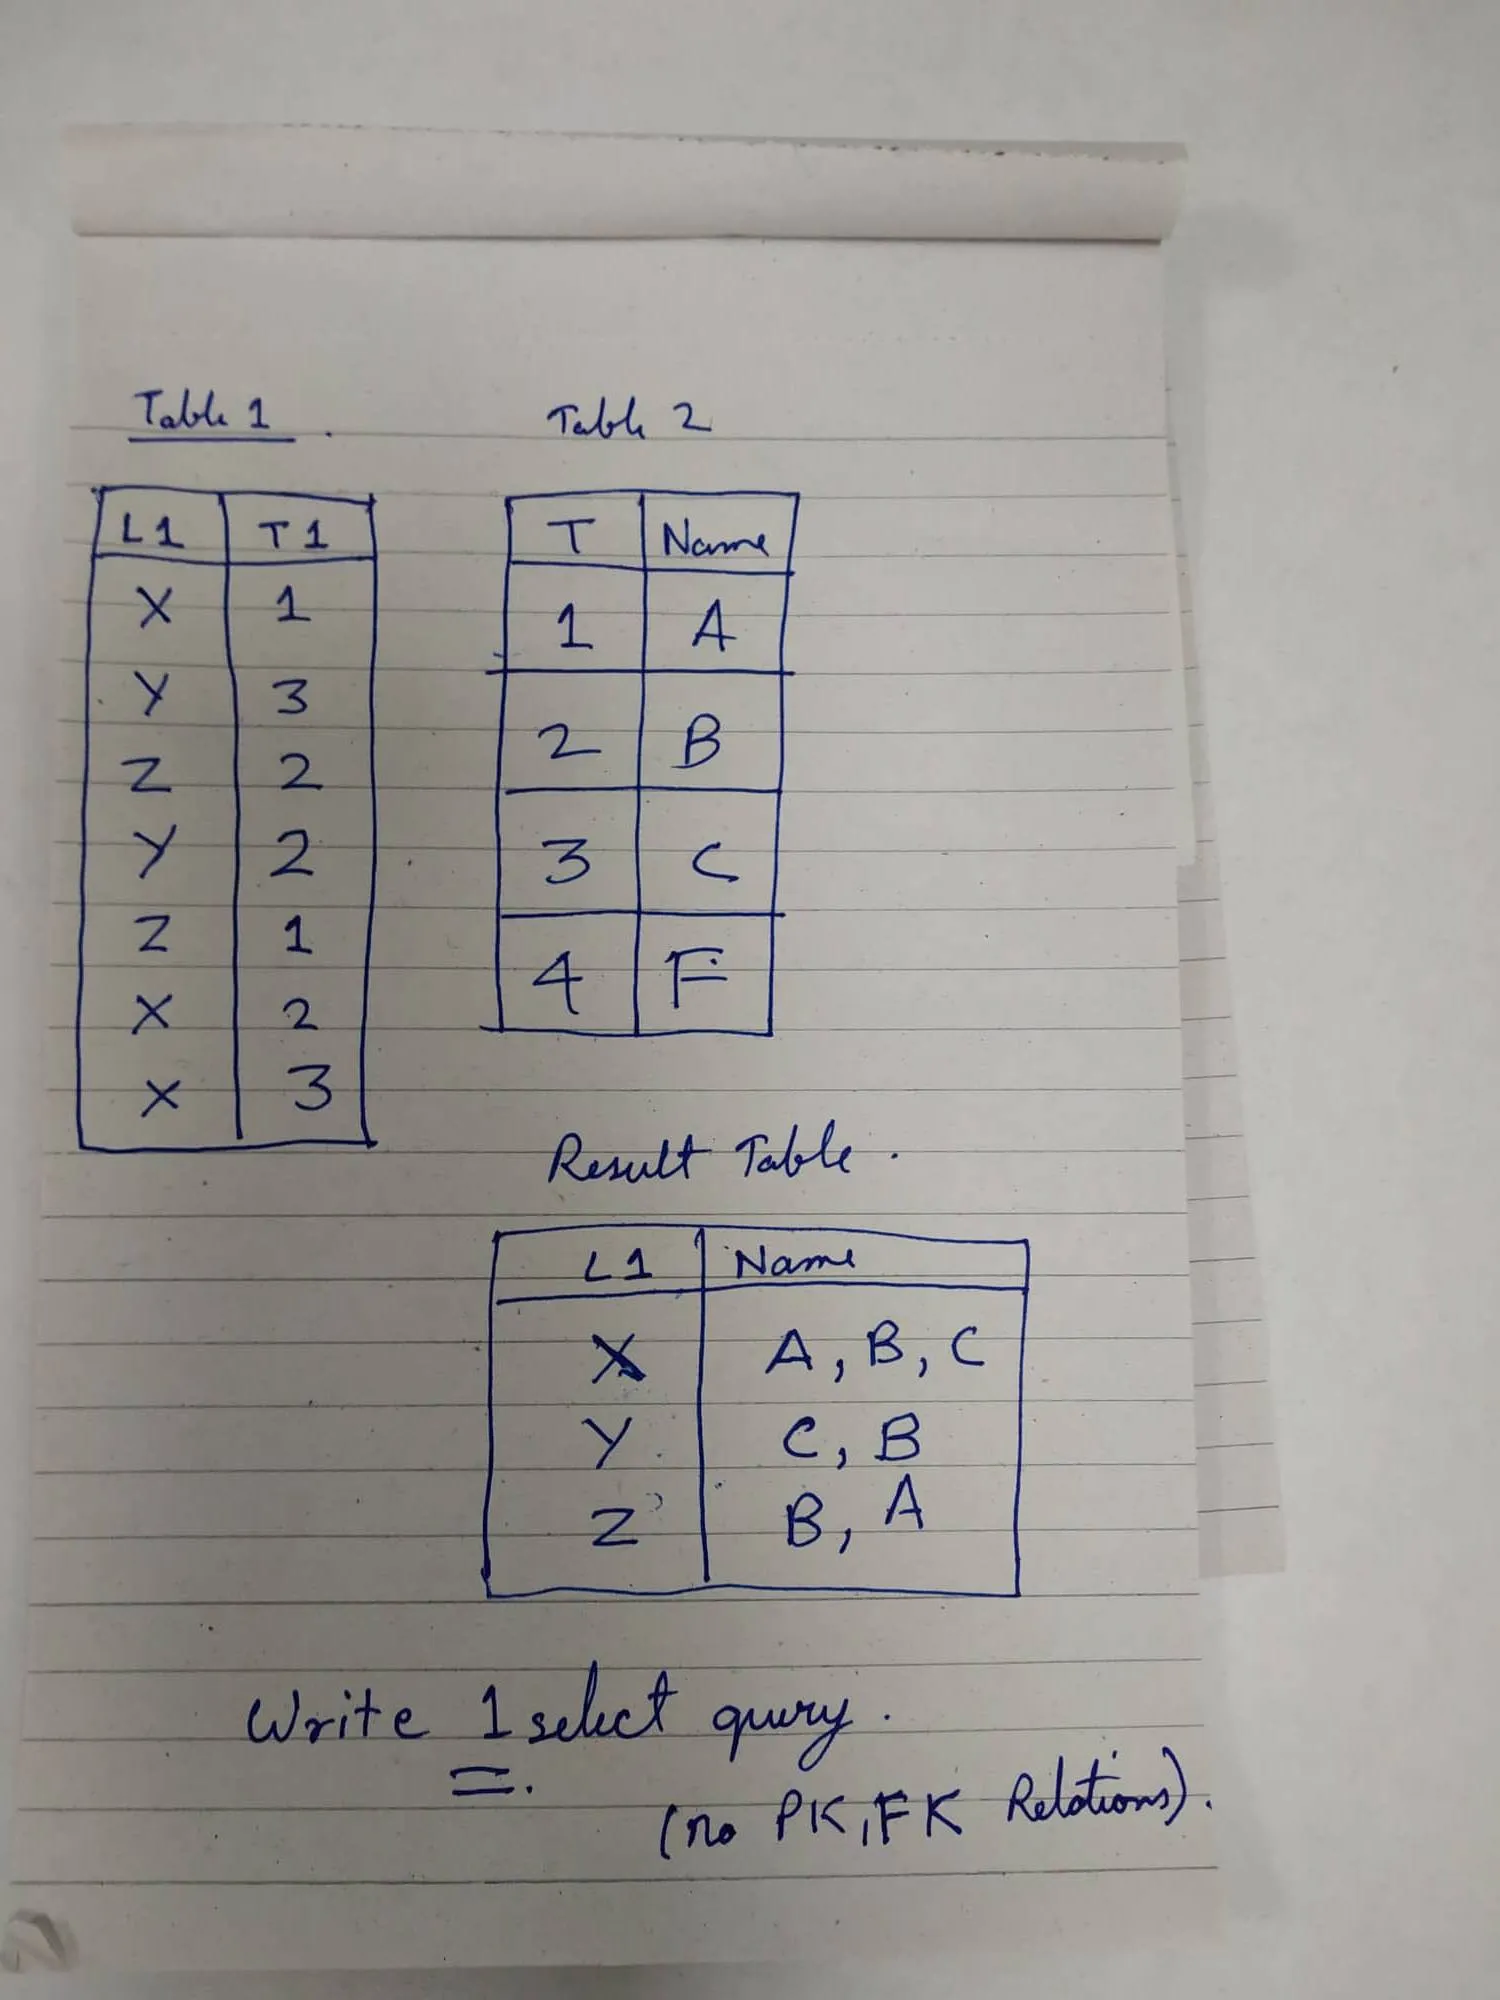 Table 1 .
Table 2
L1 T1
X 1
Y 3
Z 2
Y 2
Z 1
X 2
X 3
T Name
1 A
2 B
3 C
4 F
Result Table .
L1 Name
X A, B, C
Y C, B
Z B, A
Write 1 select query .
(no PK, FK Relations).